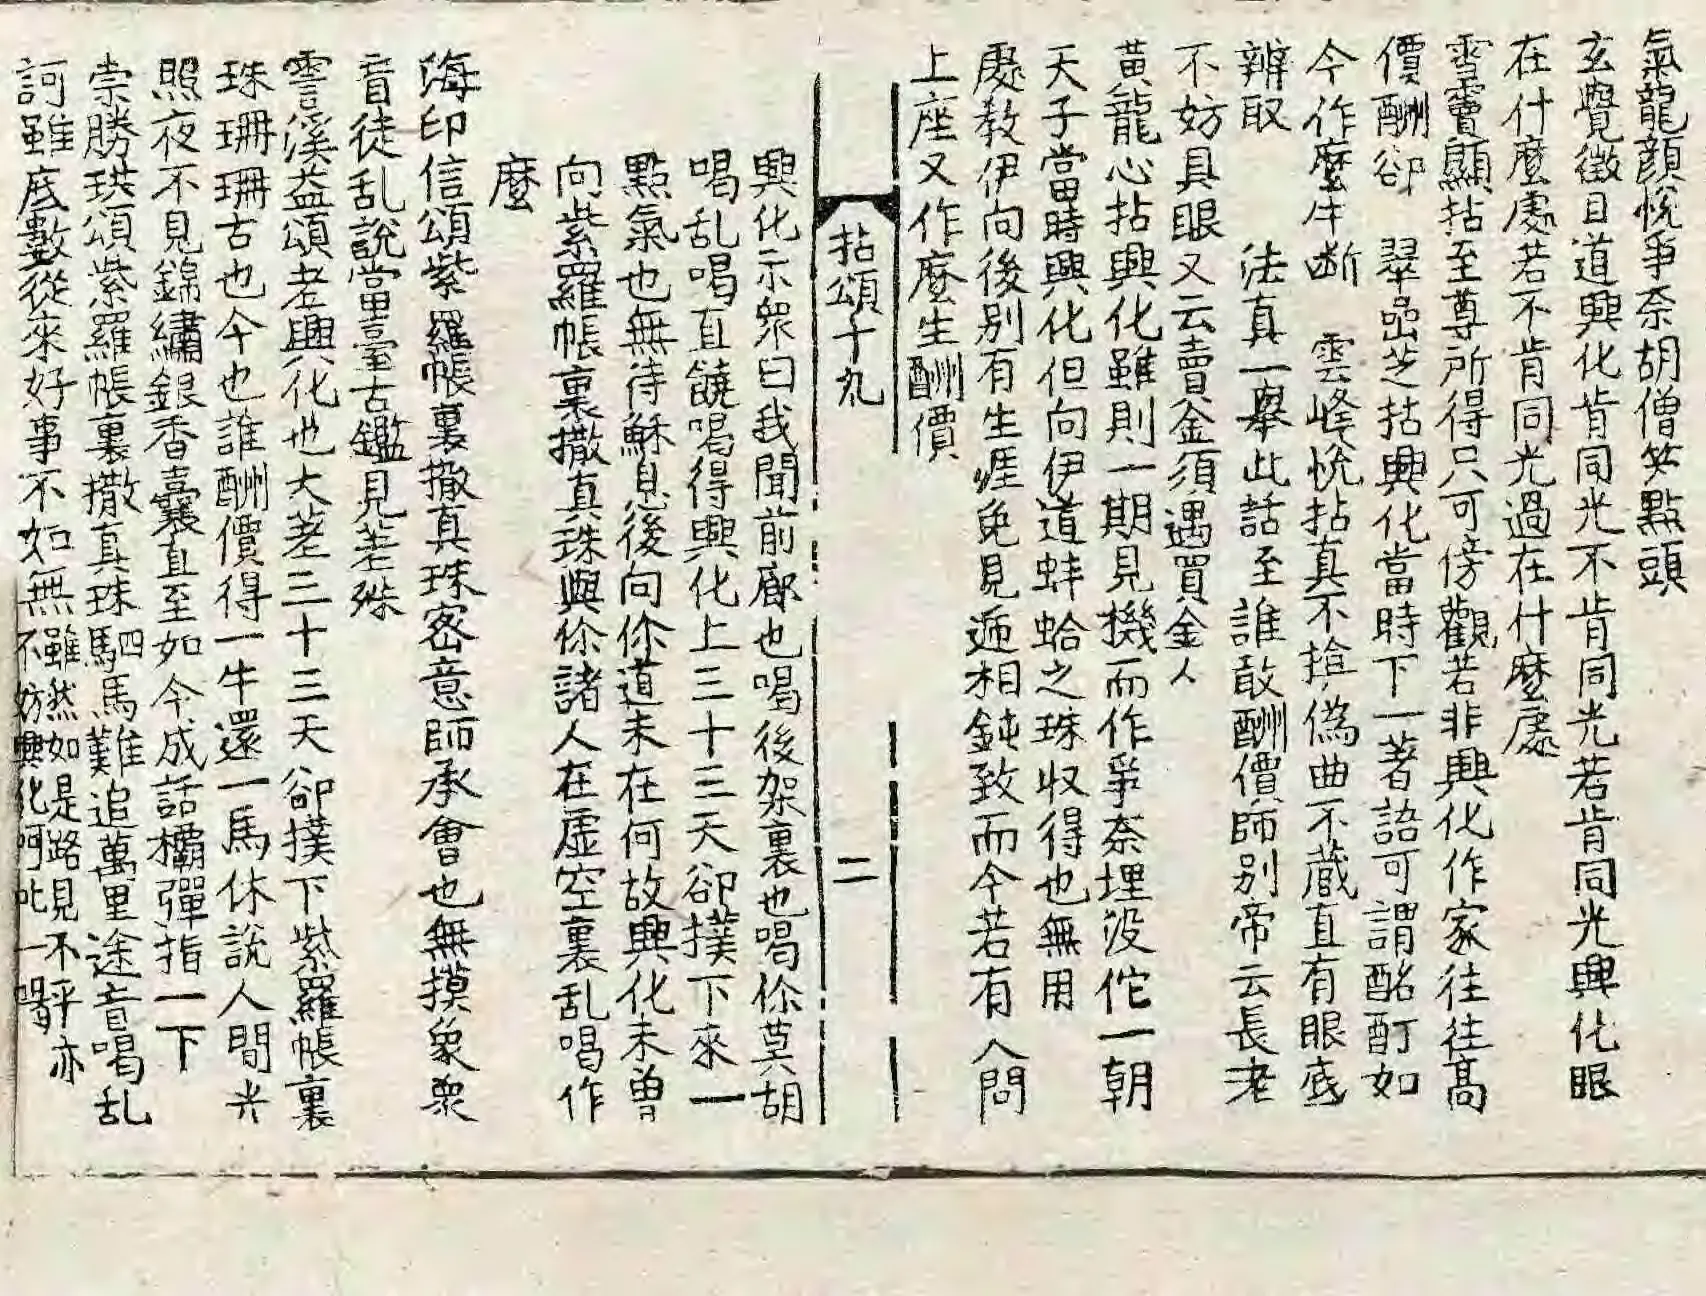 氣龍顔悅爭奈胡僧笑點頭
玄覺徵曰道興化肯同光不肯同光若肯同光興化眼
在什麼處若不肯同光過在什麼處
雪竇顯拈至尊所得只可傍觀若非興化作家往往高
價酬卻　翠嵒芝拈興化當時下一著語可謂酩酊如
今作麼生斷　雲峰悅拈真不掩偽曲不藏直有眼底
辨取　法真一舉此話至誰敢酬價師別帝云長老
不妨具眼又云賣金須遇買金人
黃龍心拈興化雖則一期見機而作爭奈埋没佗一朝
天子當時興化但向伊道蚌蛤之珠收得也無用
處教伊向後別有生涯免見逓相鈍致而今若有人問
上座又作麼生酬價
拈頌十九　二
興化示衆曰我聞前廊也喝後架裏也喝你莫胡
喝乱喝直饒喝得興化上三十三天卻撲下來一
點氣也無待穌息後向你道未在何故興化未曾
向紫羅帳裏撒真珠與你諸人在虛空裏乱喝作
麼
海印信頌紫羅帳裏撒真珠密意師承會也無摸象衆
盲徒乱說當臺古鑑見差殊
雲溪益頌老興化也大差三十三天卻撲下紫羅帳裏
珠珊珊古也今也誰酬價得一牛還一馬休說人間光
照夜不見錦繡銀香囊直至如今成話欛彈指一下
崇勝珙頌紫羅帳裏撒真珠駟馬難追萬里途音喝乱
訶雖底數從來好事不如無雖然如是路見不平亦
不妨興化呵叱一喝